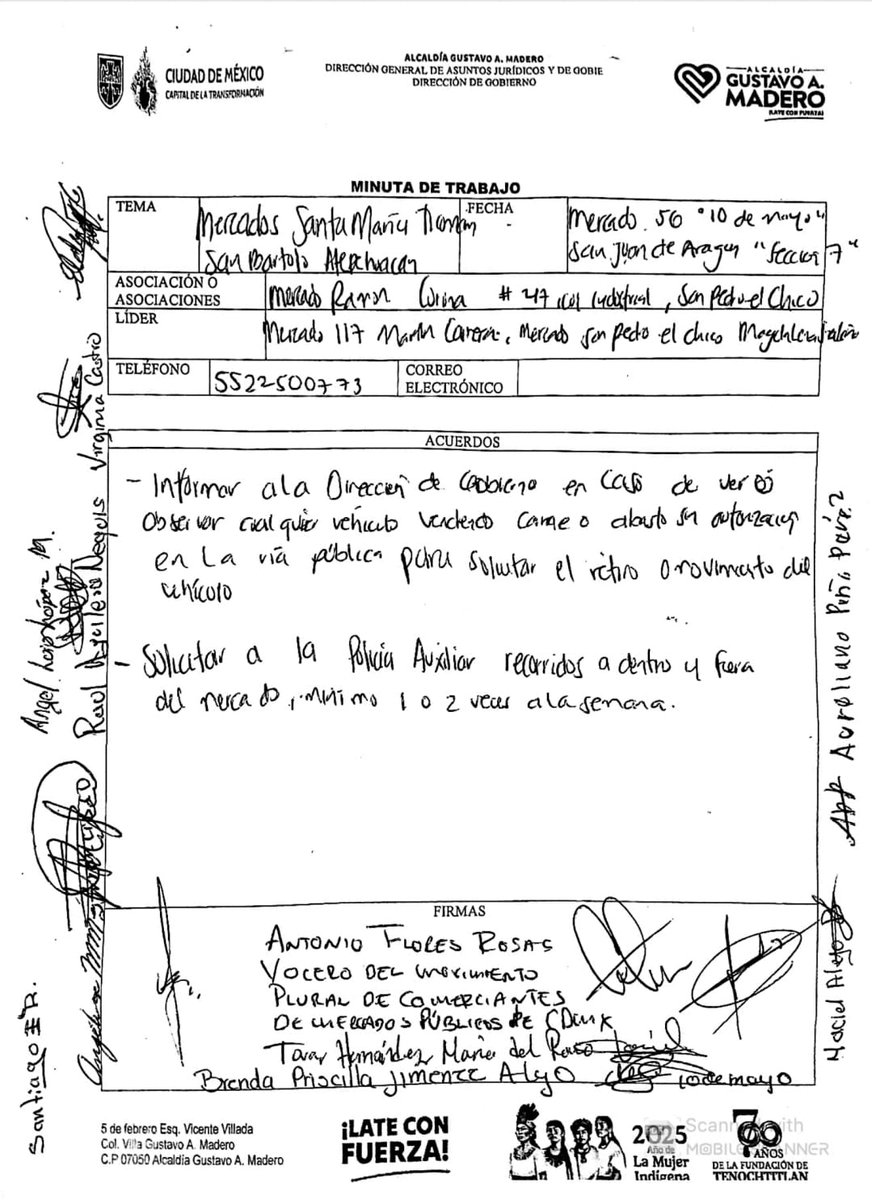 CIUDAD DE MÉXICO
CAPITAL DE LA TRANSFORMACIÓN
ALCALDÍA GUSTAVO A. MADERO
DIRECCIÓN GENERAL DE ASUNTOS JURÍDICOS Y DE GOBIE
DIRECCIÓN DE GOBIERNO
ALCALDÍA
GUSTAVO A.
MADERO
¡LATE CON FUERZA!
MINUTA DE TRABAJO
TEMA
Mercados Santa María
San Bartolo
FECHA
Mercado 56 "10 de mayo"
San Juan de Aragon "Seccion 7"
ASOCIACIÓN O
ASOCIACIONES
Mercado Ramon Corona #47 col industrial, San Pedro el Chico
LÍDER
Mercado 117 Martin Carrera, Mercado San pedro el chico Magdalena
TELÉFONO
5522500773
CORREO
ELECTRÓNICO
ACUERDOS
- Informar a la Dirección de Gobierno en caso de ver ó
Observar cualquier vehículo vendiendo carne o abasto sin autorización
en la vía pública para solicitar el retiro o movimiento del
vehículo
- Solicitar a la Policia Auxiliar recorridos adentro y fuera
del mercado, minimo 1 o 2 veces a la semana.
FIRMAS
ANTONIO FLORES ROSAS
VOCERO DEL MOVIMIENTO
PLURAL DE COMERCIANTES
DE MERCADOS PÚBLICOS DE CDMX
Tovar Hernández María del Rocío
Brenda Priscilla Jimenez Alejo
10 de mayo
Virginia Castro
Raul Aguilera
Angel
Santiago E R.
Aureliano Peña Pérez
Maciel Alejo
5 de febrero Esq. Vicente Villada
Col. Villa Gustavo A. Madero
C.P 07050 Alcaldía Gustavo A. Madero
¡LATE CON
FUERZA!
2025
Año de
La Mujer
Indígena
700
AÑOS
DE LA FUNDACIÓN DE
TENOCHTITLAN
Scanned with
MOBILE SCANNER